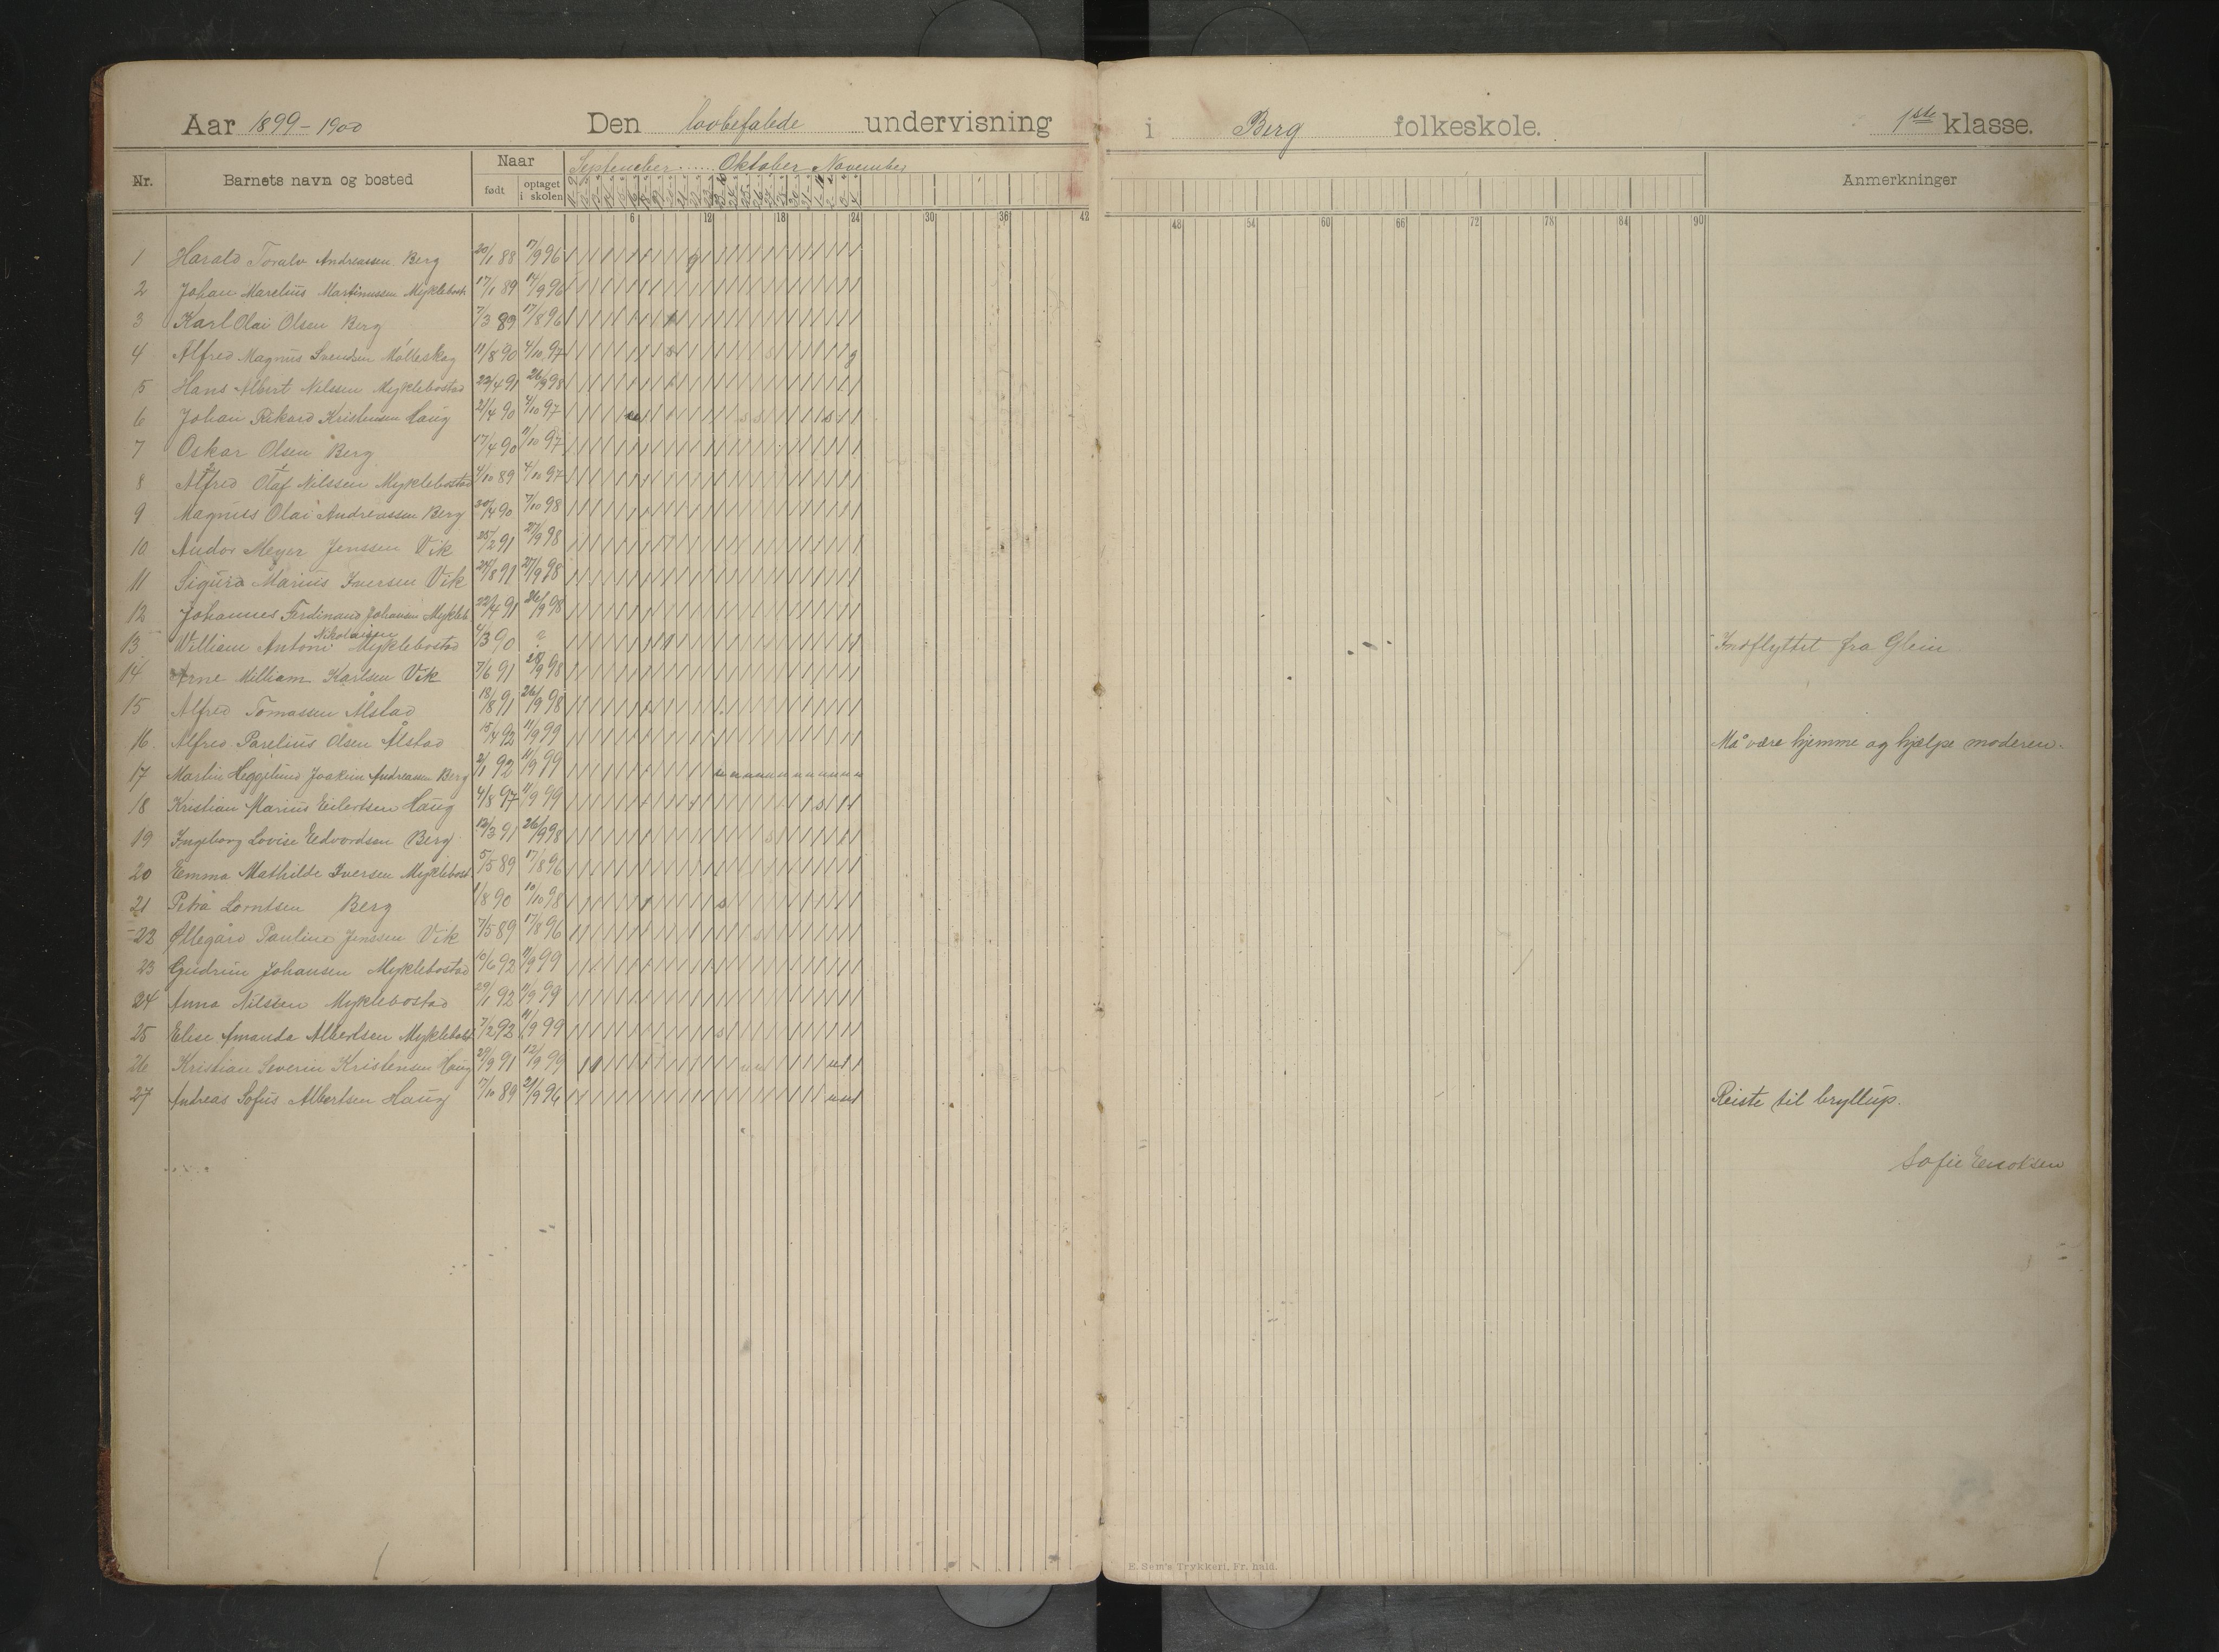 Aar 1899-1900 Den lovbefalede undervisning i Berg folkeskole. 1ste klasse.
Nr. Barnets navn og bosted Naar født optaget i skolen September Oktober November Anmerkninger
6 12 18 24 30 36 42 48 54 60 66 72 78 84 90
1 Harald Toralv Andreassen Berg 20/1 88 17/9 96
2 Johan Marelius Martinussen Myklebost 17/1 89 17/9 96
3 Karl Olai Olsen Berg 7/3 89 17/8 96
4 Alfred Magnus Svendsen Mølleskog 11/8 90 4/10 97
5 Hans Albert Nilssen Myklebostad 22/4 91 26/9 98
6 Johan Rikard Kristensen Haug 21/4 90 4/10 97
7 Oskar Olsen Berg 17/4 90 11/10 97
8 Alfred Olaf Nilssen Myklebostad 4/10 89 4/10 97
9 Magnus Olai Andreassen Berg 30/4 90 7/10 98
10 Andor Meyer Jenssen Vik 25/2 91 27/9 98
11 Sigurd Marius Iversen Vik 24/8 91 27/9 98
12 Johannes Ferdinand Johansen Mykleb. 22/4 91 26/9 98
13 William Antoni Nikolaisen Myklebostad 4/3 90 Indflyttet fra Glein
14 Arne William Karlsen Vik 7/6 91 27/9 98
15 Alfred Tomassen Alstad 18/8 91 26/9 98
16 Alfred Parelius Olsen Ålstad 15/4 92 11/9 99 Må være hjemme og hjælpe moderen.
17 Martin Heggelund Joakim Andreassen Berg 2/1 92 11/9 99
18 Kristian Marius Eilertsen Haug 4/8 97 11/9 99
19 Ingeborg Lovise Edvardsen Berg 12/3 91 26/9 98
20 Emma Mathilde Iversen Myklebost. 5/5 89 17/8 96
21 Petra Lorntsen Berg 1/8 90 10/10 98
22 Øllegård Pauline Jenssen Vik 7/5 89 17/8 96
23 Gudrun Johansen Myklebostad 10/6 92 11/9 99
24 Anna Nilssen Myklebostad 29/1 92 11/9 99
25 Elise Amanda Albertsen Myklebost 7/2 92 11/9 99
26 Kristian Severin Kristensen Haug 29/9 91 12/9 99
27 Andreas Sofus Albertsen Haug 7/10 89 21/9 96 Reiste til bryllup.
Sofie Enoksen
E. Sem's Trykkeri, Fr. hald.